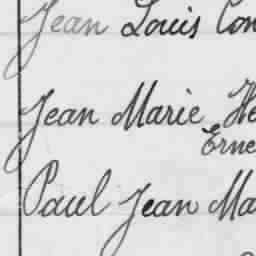 Jean Louis Con
Jean Marie He
Erne
Paul Jean Ma